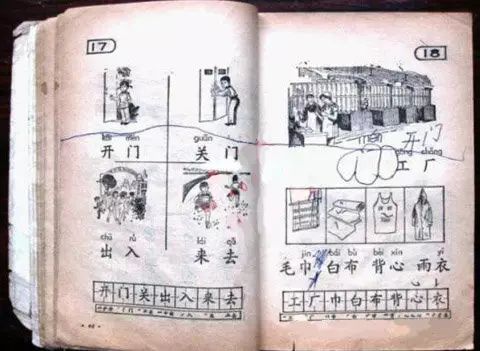 17
kāi mén guān mén
开门 关门
chū rù lái qù
出入 来去
开门关出入来去
18
mén 开门
gōng chǎng
工厂
jīn bái bù bèi xīn yī
毛巾 白布 背心 雨衣
工厂巾白布背心衣